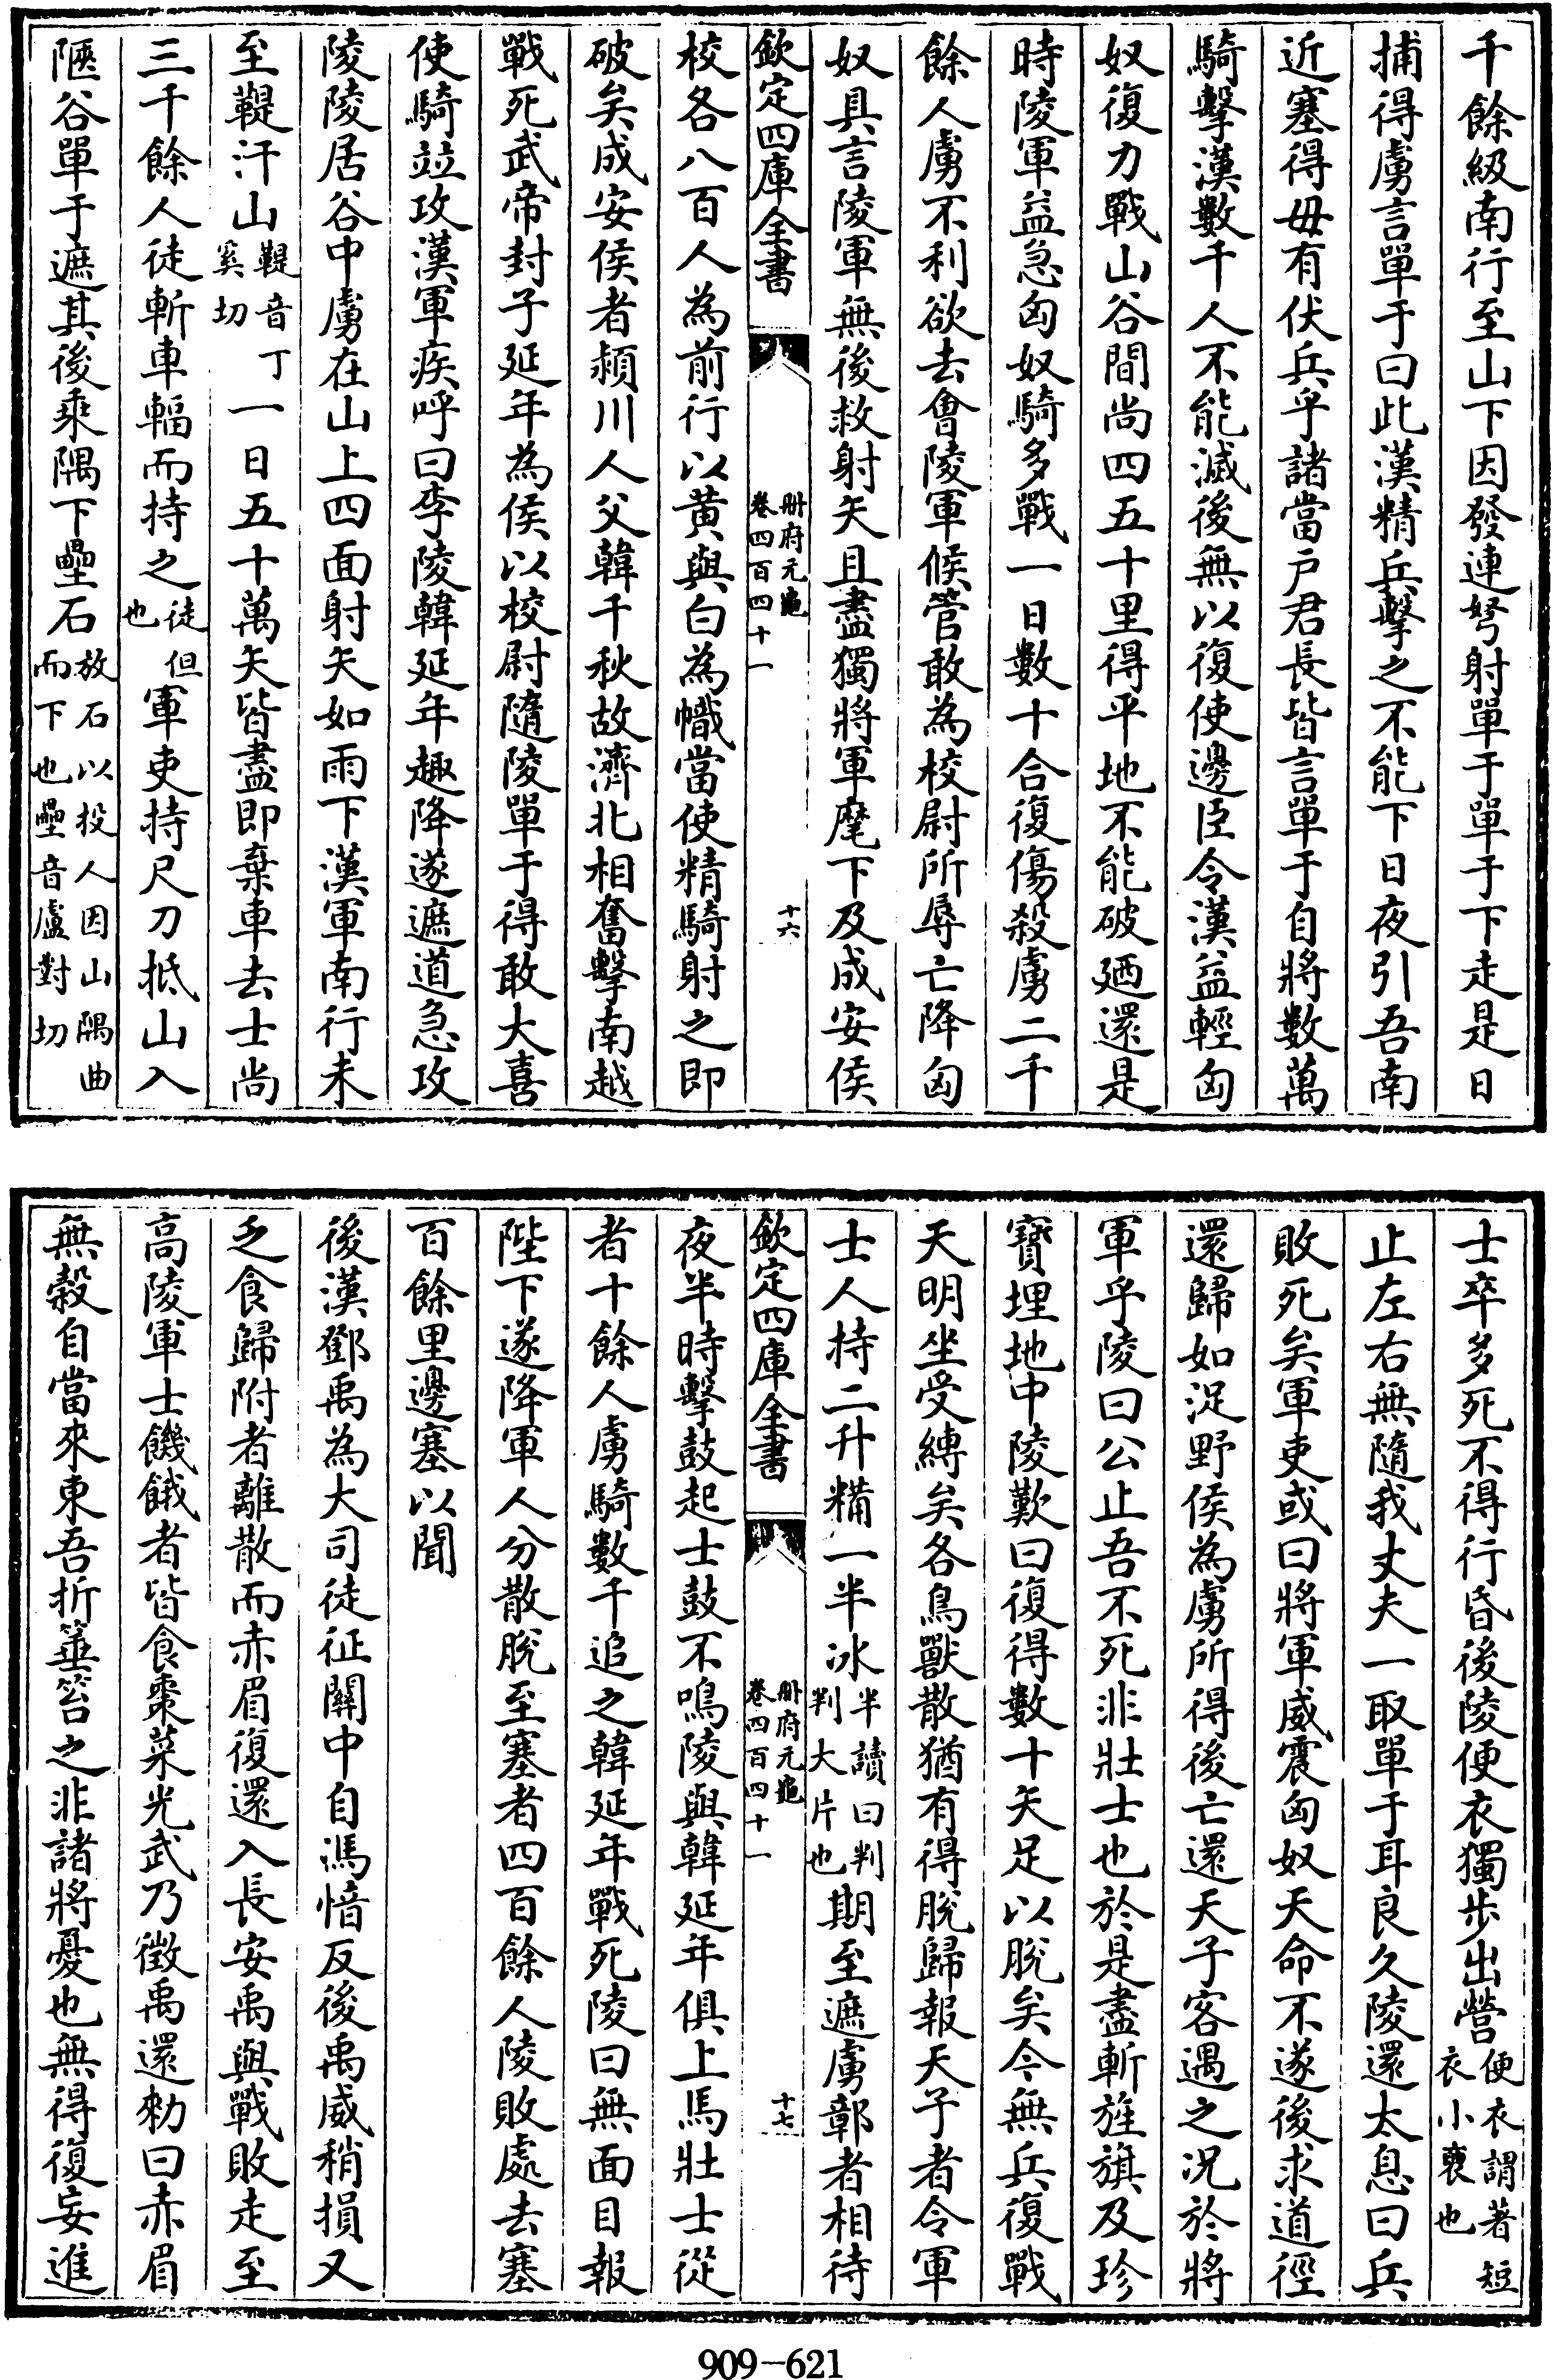 千餘級南行至山下因發連弩射單于單于下走是日
捕得虜言單于曰此漢精兵擊之不能下日夜引吾南
近塞得毋有伏兵乎諸當户君長皆言單于自將數萬
騎擊漢數千人不能滅後無以復使邊臣令漢益輕匈
奴復力戰山谷間尚四五十里得平地不能破廼還是
時陵軍益急匈奴騎多戰一日數十合復傷殺虜二千
餘人虜不利欲去會陵軍候管敢為校尉所辱亡降匈
奴具言陵軍無後救射矢且盡獨將軍麾下及成安侯
欽定四庫全書
册府元龜
卷四百四十一
十六
校各八百人為前行以黄與白為幟當使精騎射之即
破矣成安侯者潁川人父韓千秋故濟北相奮擊南越
戰死武帝封子延年為侯以校尉隨陵單于得敢大喜
使騎竝攻漢軍疾呼曰李陵韓延年趣降遂遮道急攻
陵陵居谷中虜在山上四面射矢如雨下漢軍南行未
至鞮汗山鞮音丁奚切一日五十萬矢皆盡即棄車去士尚
三千餘人徒斬車輻而持之徒但也軍吏持尺刀抵山入
陿谷單于遮其後乘隅下壘石放石以投人因山隅曲而下也壘音盧對切
士卒多死不得行昏後陵便衣獨步出營便衣謂著短衣小𮖐也
止左右無隨我丈夫一取單于耳良久陵還太息曰兵
敗死矣軍吏或曰將軍威震匈奴天命不遂後求道徑
還歸如浞野侯為虜所得後亡還天子客遇之况於將
軍乎陵曰公止吾不死非壯士也於是盡斬旌旗及珍
寶埋地中陵歎曰復得數十矢足以脫矣今無兵復戰
天明坐受縛矣各鳥獸散猶有得脫歸報天子者令軍
士人持二升糒一半冰半讀曰判判大片也期至遮虜鄣者相待
欽定四庫全書
册府元龜
卷四百四十一
十七
夜半時擊鼓起士鼓不鳴陵與韓延年俱上馬壯士從
者十餘人虜騎數千追之韓延年戰死陵曰無面目報
陛下遂降軍人分散脫至塞者四百餘人陵敗處去塞
百餘里邊塞以聞
後漢鄧禹為大司徒征關中自馮愔反後禹威稍損又
乏食歸附者離散而赤眉復還入長安禹與戰敗走至
高陵軍士饑餓者皆食棗菜光武乃徵禹還勑曰赤眉
無穀自當來東吾折箠笞之非諸將憂也無得復妄進
909-621